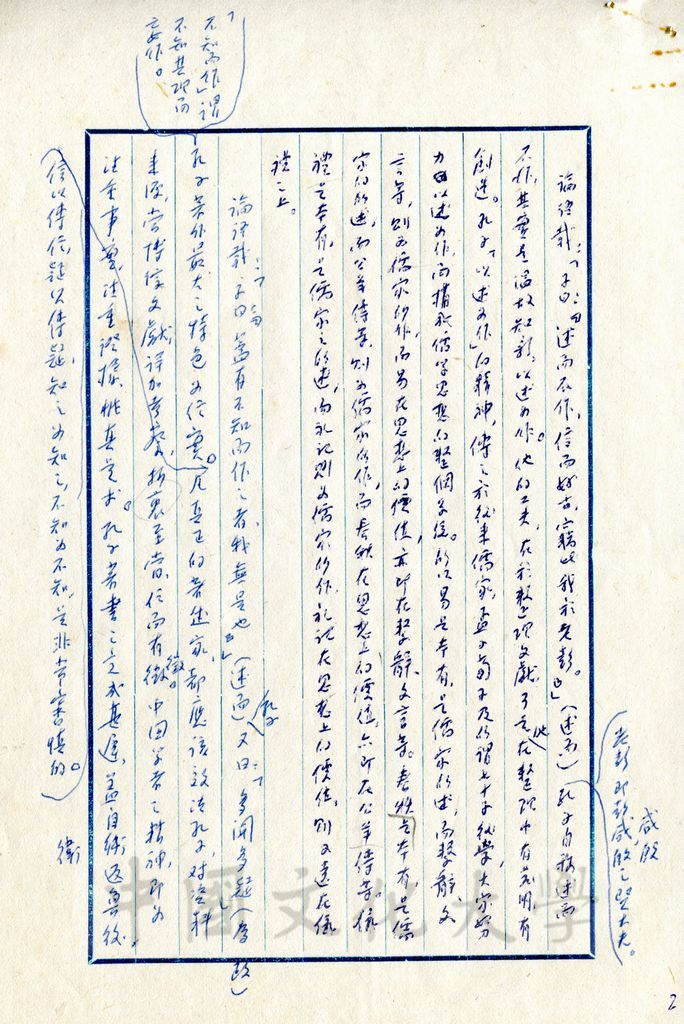 論語載：「子曰：『述而不作，信而好古，竊比我於老彭。』」（述而）孔子自稱述而
不作，其實是溫故知新，以述為作。他的工夫，在於整理文獻，而在此整理中有發明，有
創造。孔子「以述為作」的精神，傳之於後來儒家，孟子荀子及所謂七十子後學，大家努
力由以述為作，而構成儒學思想的整個系統。所以易是本有，是儒家所述，而繫辭文
言等，則為儒家所作，而易在思想上的價值，亦即在繫辭文言等。春秋是本有，是儒
家的所述，而公羊傳等，則為儒家所作，而春秋在思想上的價值，亦即在公羊傳等。儀
禮是本有，是儒家之所述，而禮記則為儒家所作，禮記在思想上的價值，則又遠在儀
禮之上。
論語載：「子曰：『蓋有不知而作之者，我無是也。』」（述而）又曰：「多聞闕疑」（為政）
孔子著作最大之特色為信實。凡真正的著述家，都應該效法孔子，對資料
來源，當博綜文獻，詳加考察，折衷至當，信而有徵。中國學者之精神，即為
注重事實，注重證據，惟真是求。孔子著書之完成甚遲，蓋自衛返魯後，
信以傳信，疑以傳疑，知之為知之，不知為不知，是非常審慎的。
「不知而作」謂
不知其理而
妄作。
老彭即彭咸殷之賢大夫。
咸殷
孔子
徵
衛
中國文化大學
2